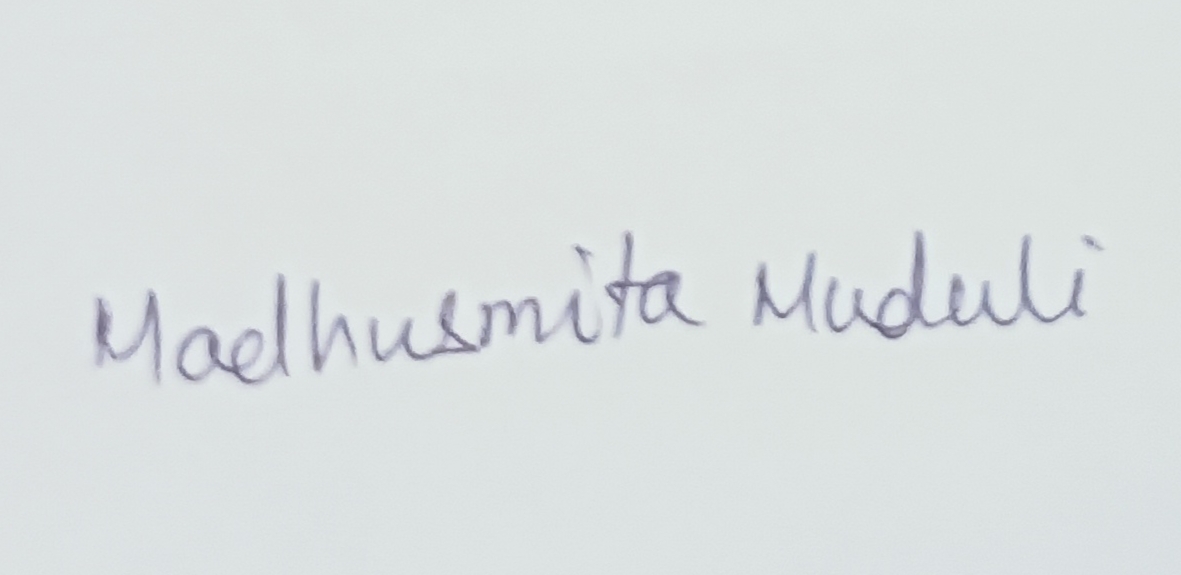 Madhusmita Muduli